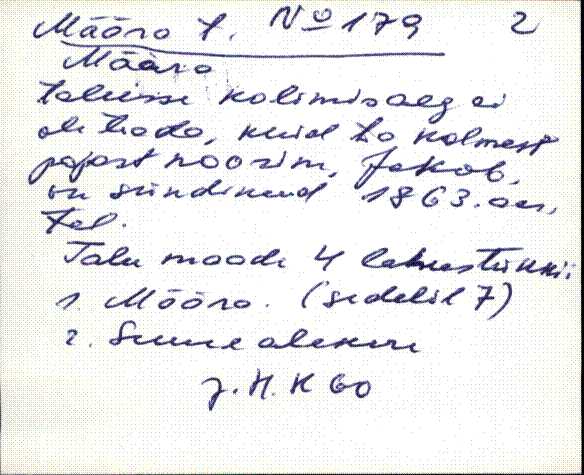 Määro t. № 179 2
Määro
talusse kolimisaeg ei
ole teada, kuid ta kolmest
pojast noorim, Jakob,
on sündinud 1863. aas.
tal.
Talu maade 4 lahustükki:
1. Määro. (sedelil 7)
2. Suure
J. H. K 60